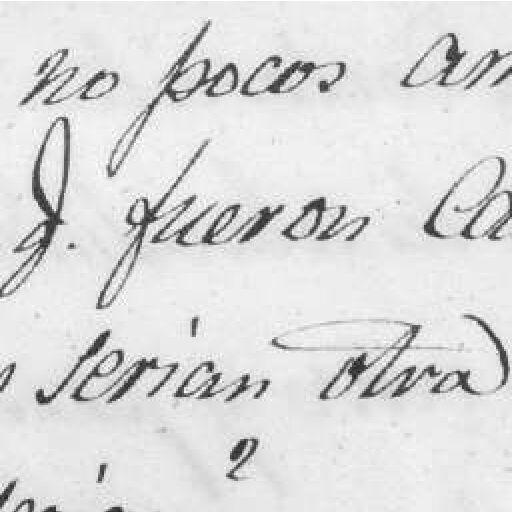 no pocos
q. fueron
serian otra
2